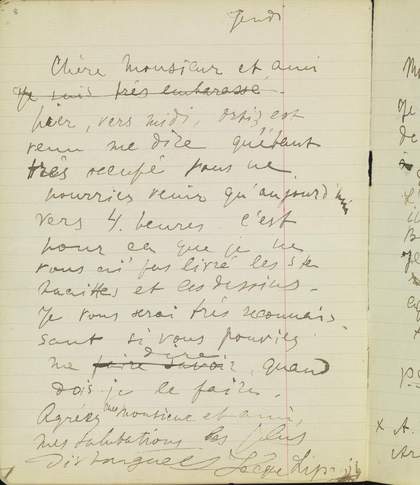 Jeudi
Chère Monsieur et ami
Je suis très embarassé.
hier, vers midi, Ortiz est
venu me dire qu'étant
très occupé vous ne
pourriez venir qu'aujourd'hui
vers 4. heures c'est
pour ça que je ne
vous ai pas livré les
et les dessins.
Je vous serai très reconnais
sant si vous pouviez
me faire savoir dire, quand
dois je le faire.
Agréez Monsieur et ami,
mes salutations les plus
distingués